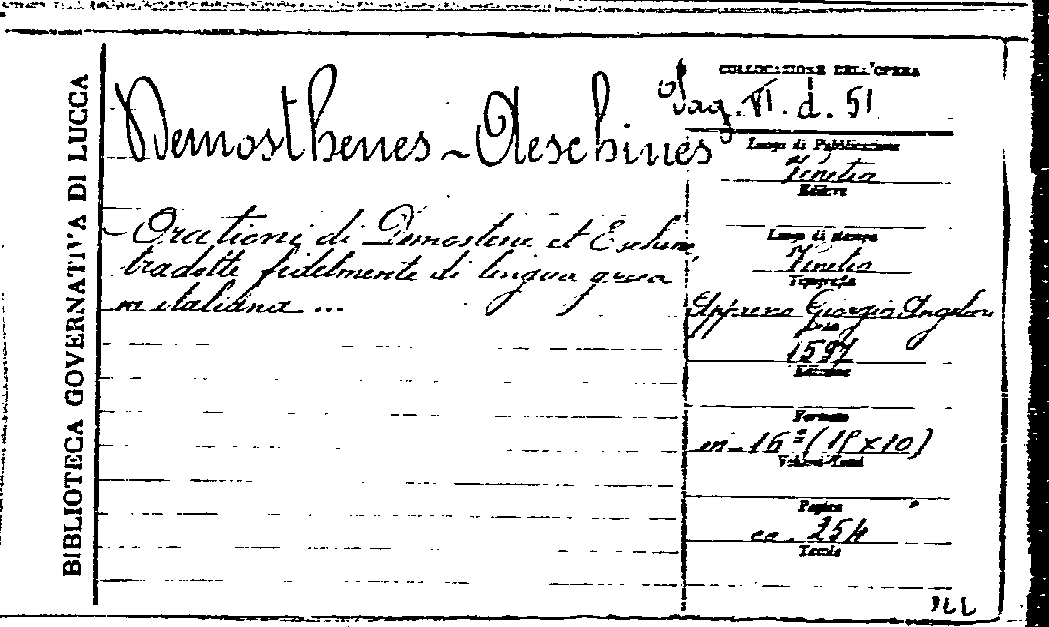 BIBLIOTECA GOVERNATIVA DI LUCCA
Demosthenes - Aeschines
Orationi di Demostene et Eschine,
tradotte fidelmente di lingua greca
in italiana ...
COLLOCAZIONE DELL'OPERA
VI. d. 51
Luogo di Pubblicazione
Venetia
Editore
Luogo di stampa
Venetia
Tipografia
Appresso Giorgio Angelieri
1597
Edizione
Formato
in-16º (15 x 10)
Volumi/Tomi
Pagine
cc. 254
Tavole